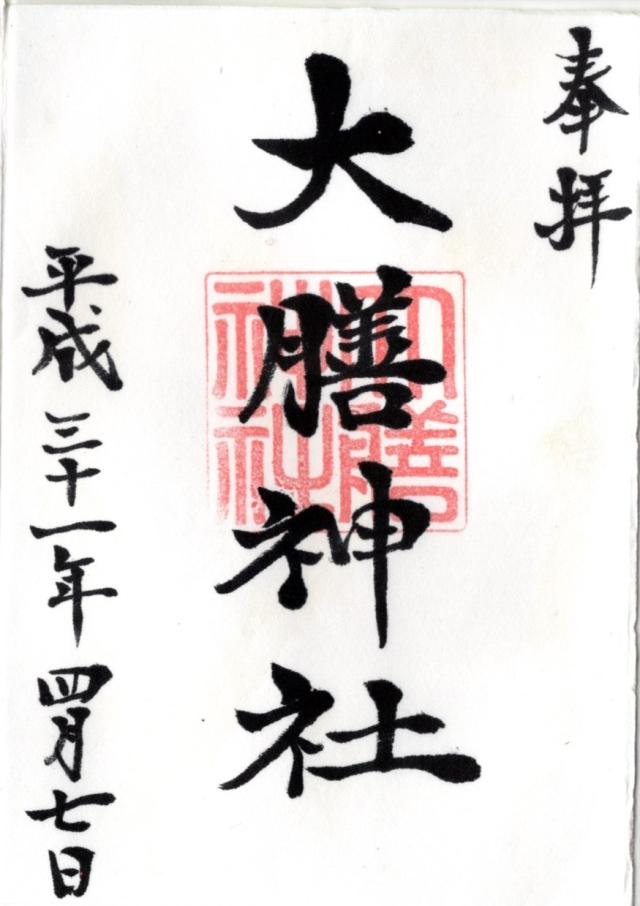 奉拝
大膳神社
大膳神社
平成三十一年四月七日